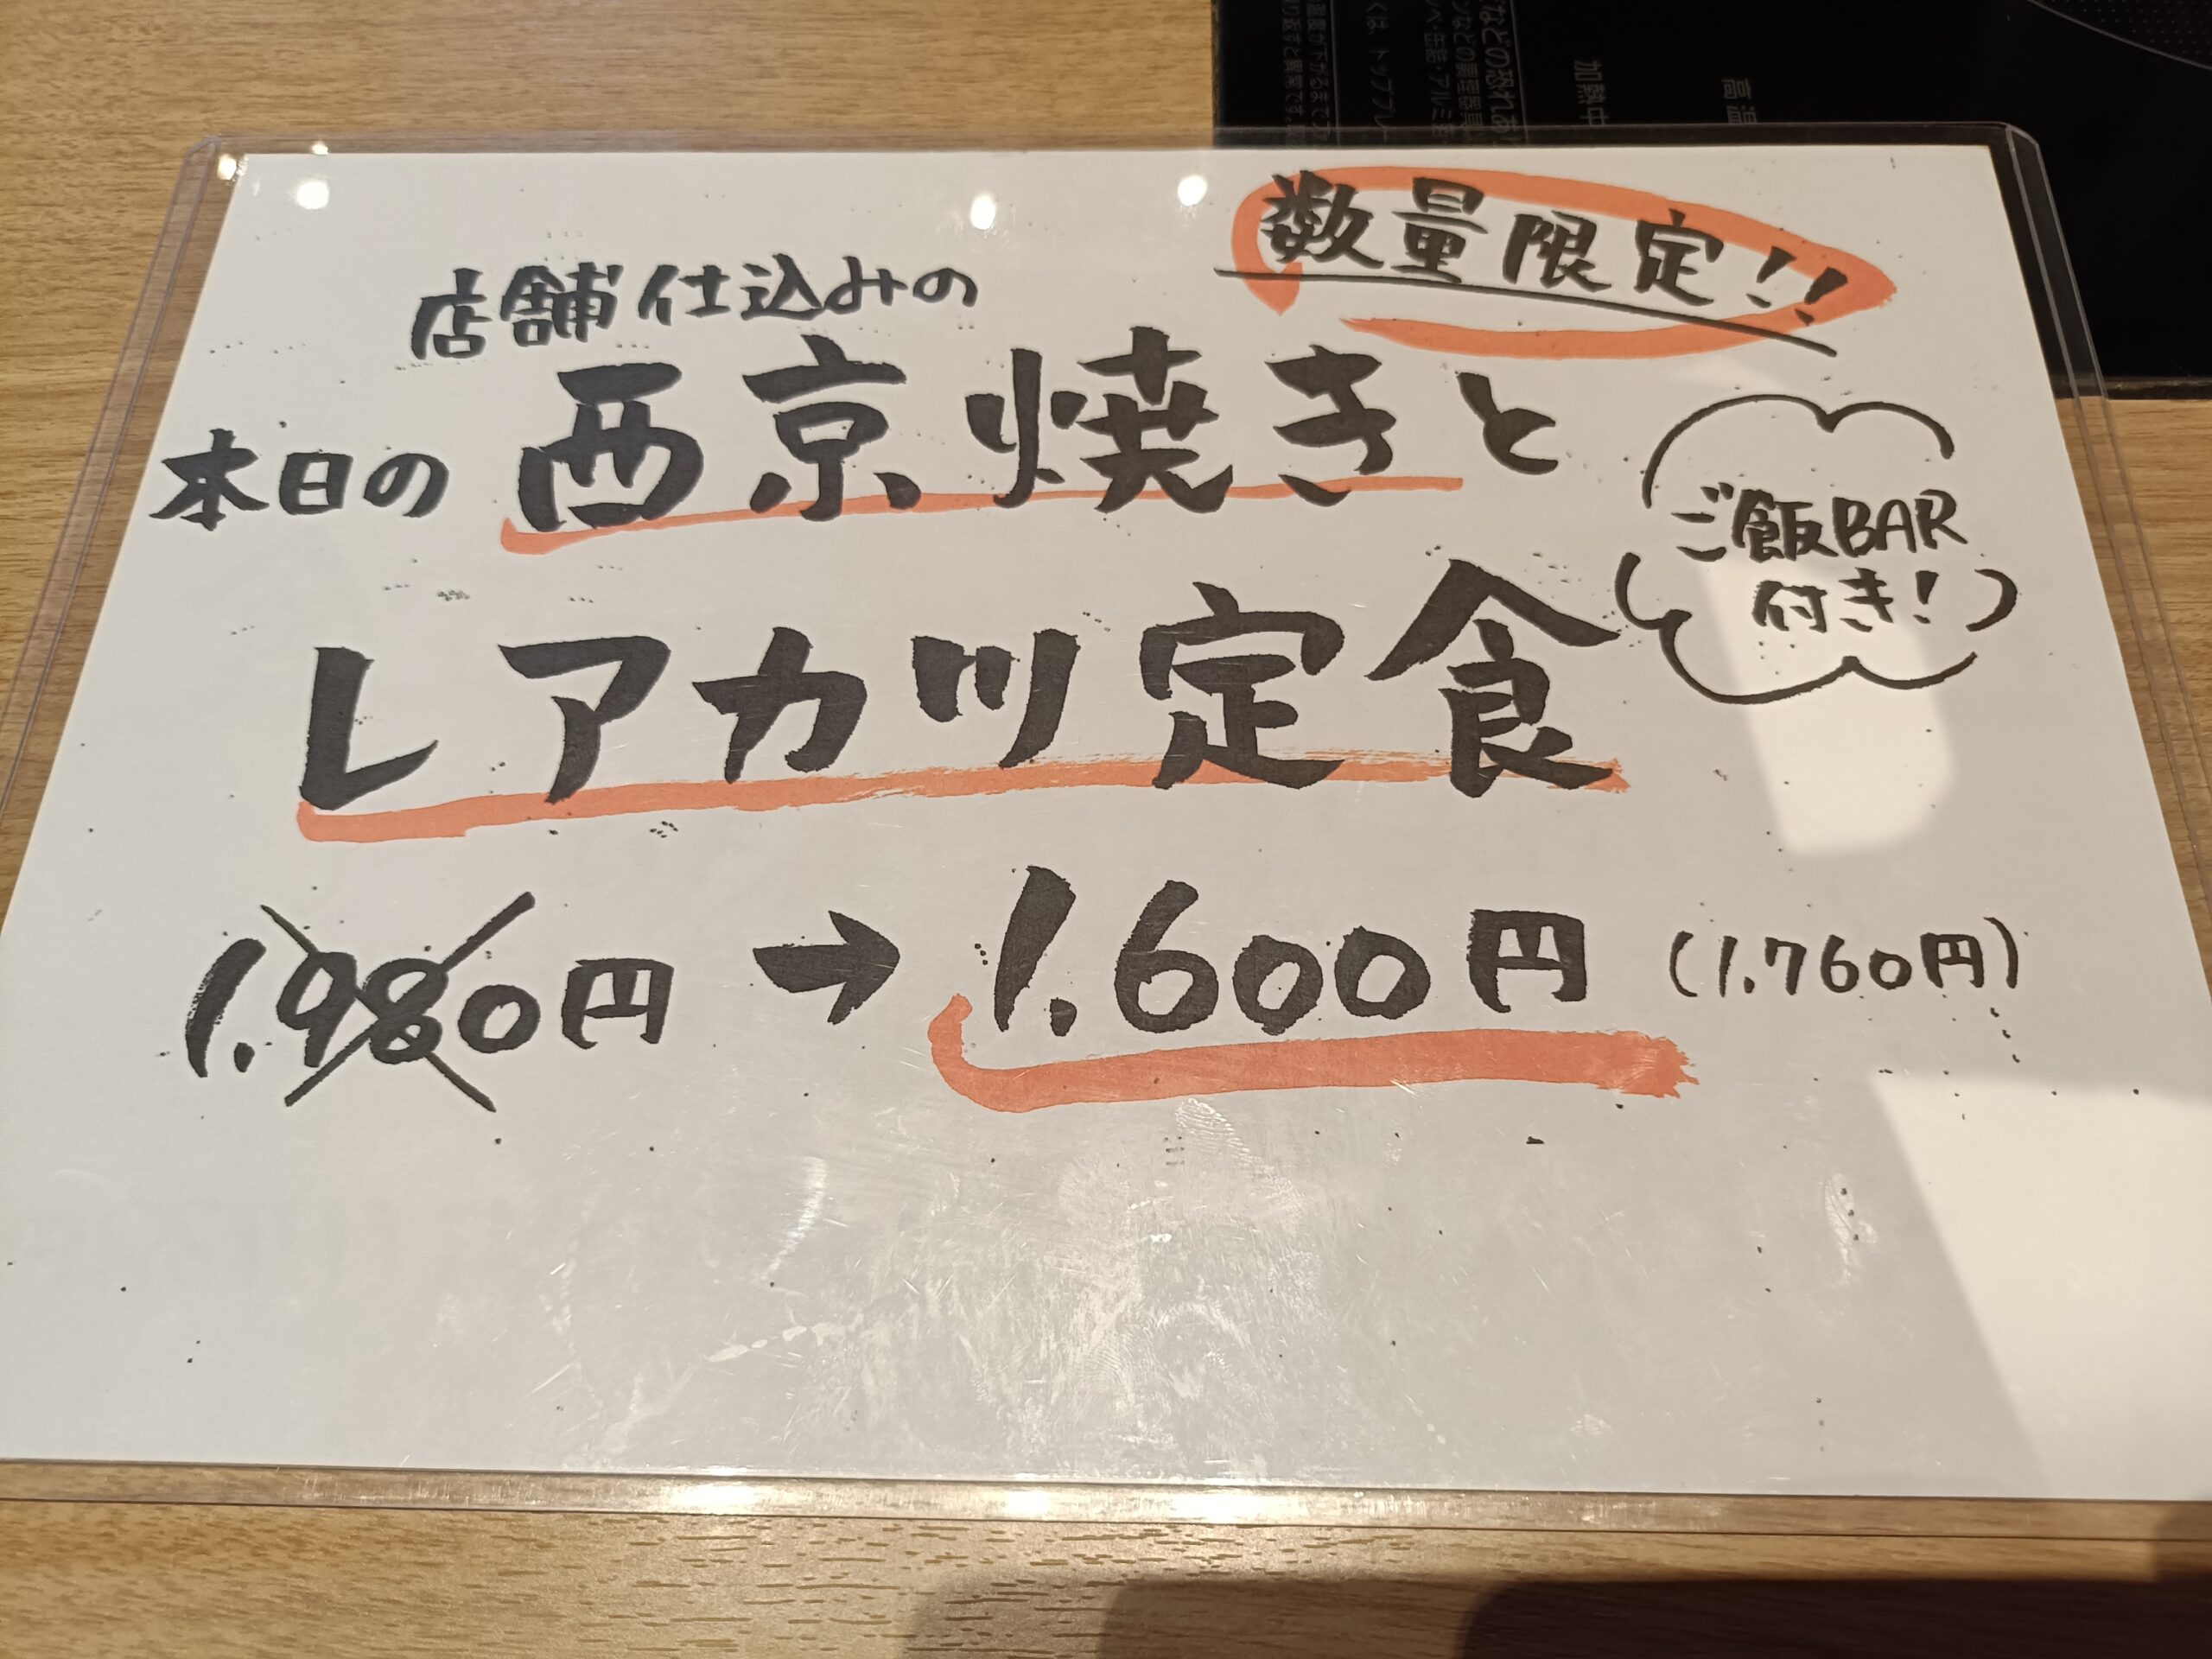 数量限定!!
店舗仕込みの
本日の 西京焼きと
ご飯BAR
付き!
レアカツ定食
1.980円 → 1.600円 (1.760円)
高温
加熱中